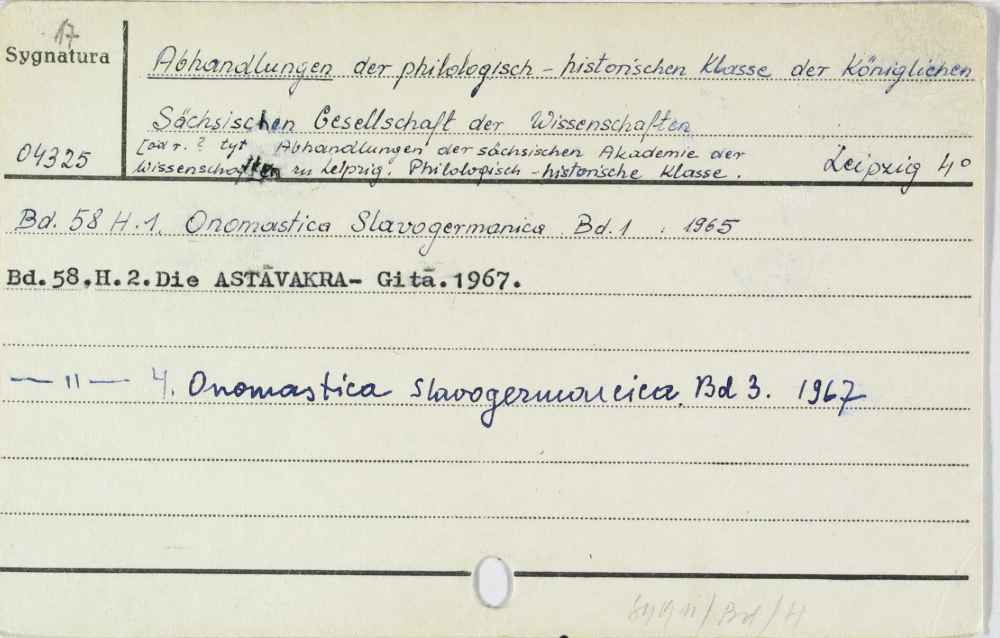 17
Sygnatura
Abhandlungen der philologisch-historischen Klasse der Königlichen
Sächsischen Gesellschaft der Wissenschaften
04325
[od r. ? tyt Abhandlungen der sächsischen Akademie der
Wissenschaften zu Leipzig. Philologisch-historische Klasse.
Leipzig 4°
Bd. 58 H.1. Onomastica Slavogermanica Bd.1 . 1965
Bd.58.H.2.Die ASTĀVAKRA- Gitā.1967.
— 11 — 4. Onomastica Slavogermanica. Bd 3. 1967
/Bd/H